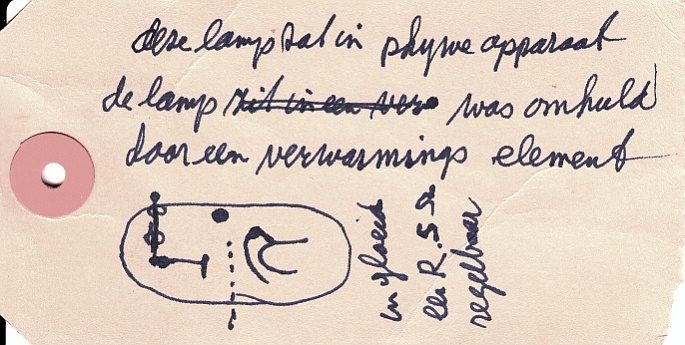 deze lamp zat in phywe apparaat
de lamp zit in een ver was omhuld
door een verwarmings element
in gloeid
een R. S
regelbaar